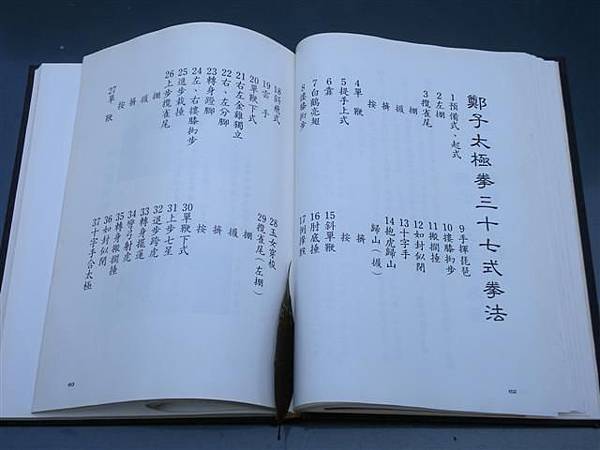 鄭子太極拳三十七式拳法
1預備式、起式
2左掤
3攬雀尾
掤
攦
擠
按
4單鞭
5提手上式
6靠
7白鶴亮翅
8摟膝拗步
9手揮琵琶
10摟膝拗步
11搬攔捶
12如封似閉
13十字手
14抱虎歸山
歸山(攦)
擠
按
15斜單鞭
16肘底捶
18斜飛式
19雲手
20單鞭下式
21右左金雞獨立
22右、左分腳
23轉身蹬腳
24左、右摟膝拗步
25進步栽捶
26上步攬雀尾
掤
攦
擠
按
27單鞭
28玉女穿梭
29攬雀尾(左掤)
掤
攦
擠
按
30單鞭下式
31上步七星
32退步跨虎
33轉身擺蓮
34彎弓射虎
35轉身搬攔捶
36如封似閉
37十字手合太極
60